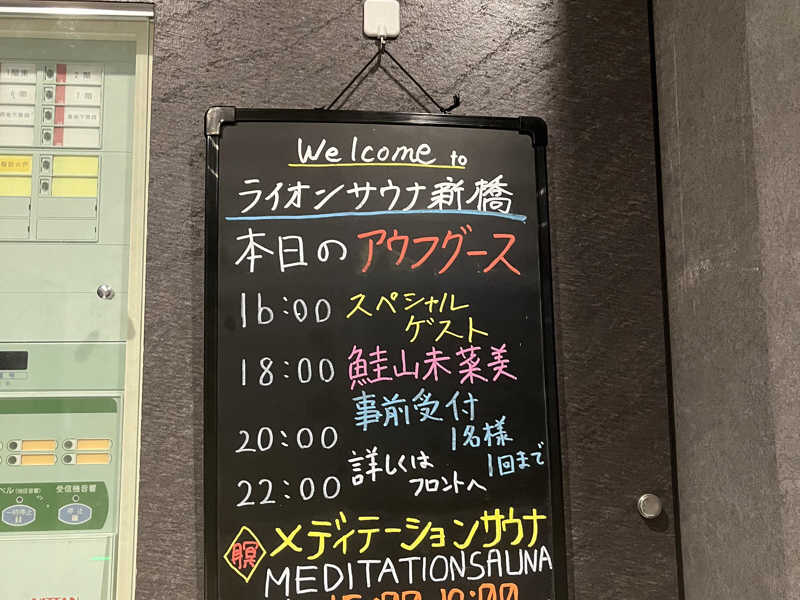 Welcome to
ライオンサウナ新橋
本日のアウフグース
16:00 スペシャル
ゲスト
18:00 鮭山未菜美
事前受付
20:00 1名様
1回まで
詳しくは
22:00 フロントへ
メディテーションサウナ
MEDITATION SAUNA
2階
7階
受信機音響
一時停止
停止